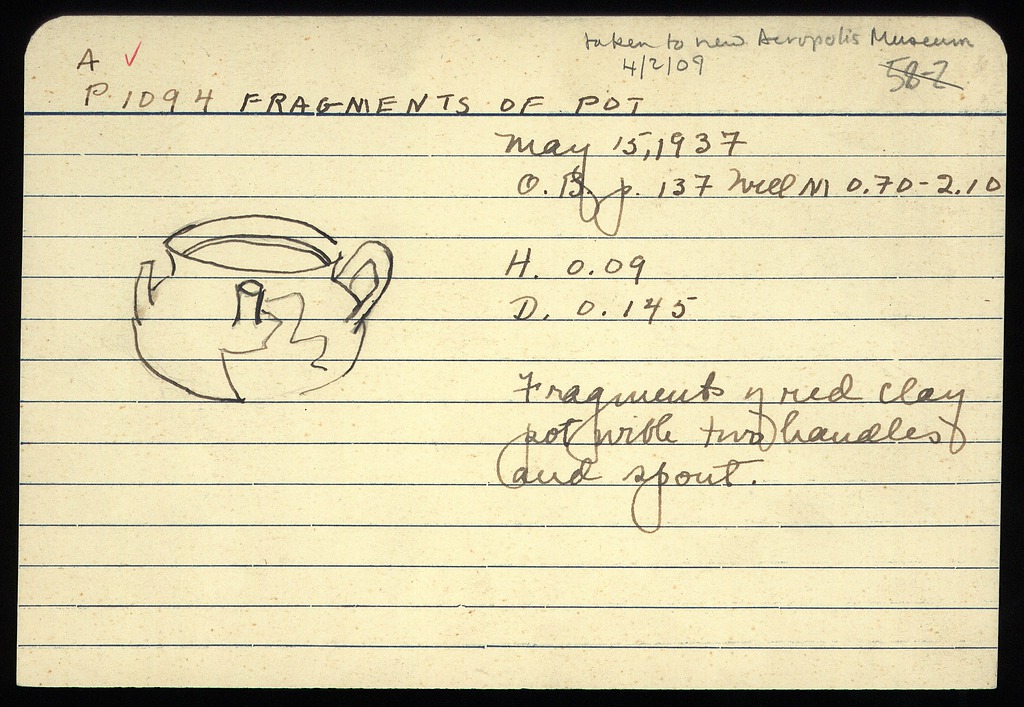 taken to new Acropolis Museum
4/2/09
58-2
A ✓
P 1094 FRAGMENTS OF POT
May 15, 1937
O.B. p. 137 Well M 0.70-2.10
H. 0.09
D. 0.145
Fragments of red clay
pot with two handles
and spout.